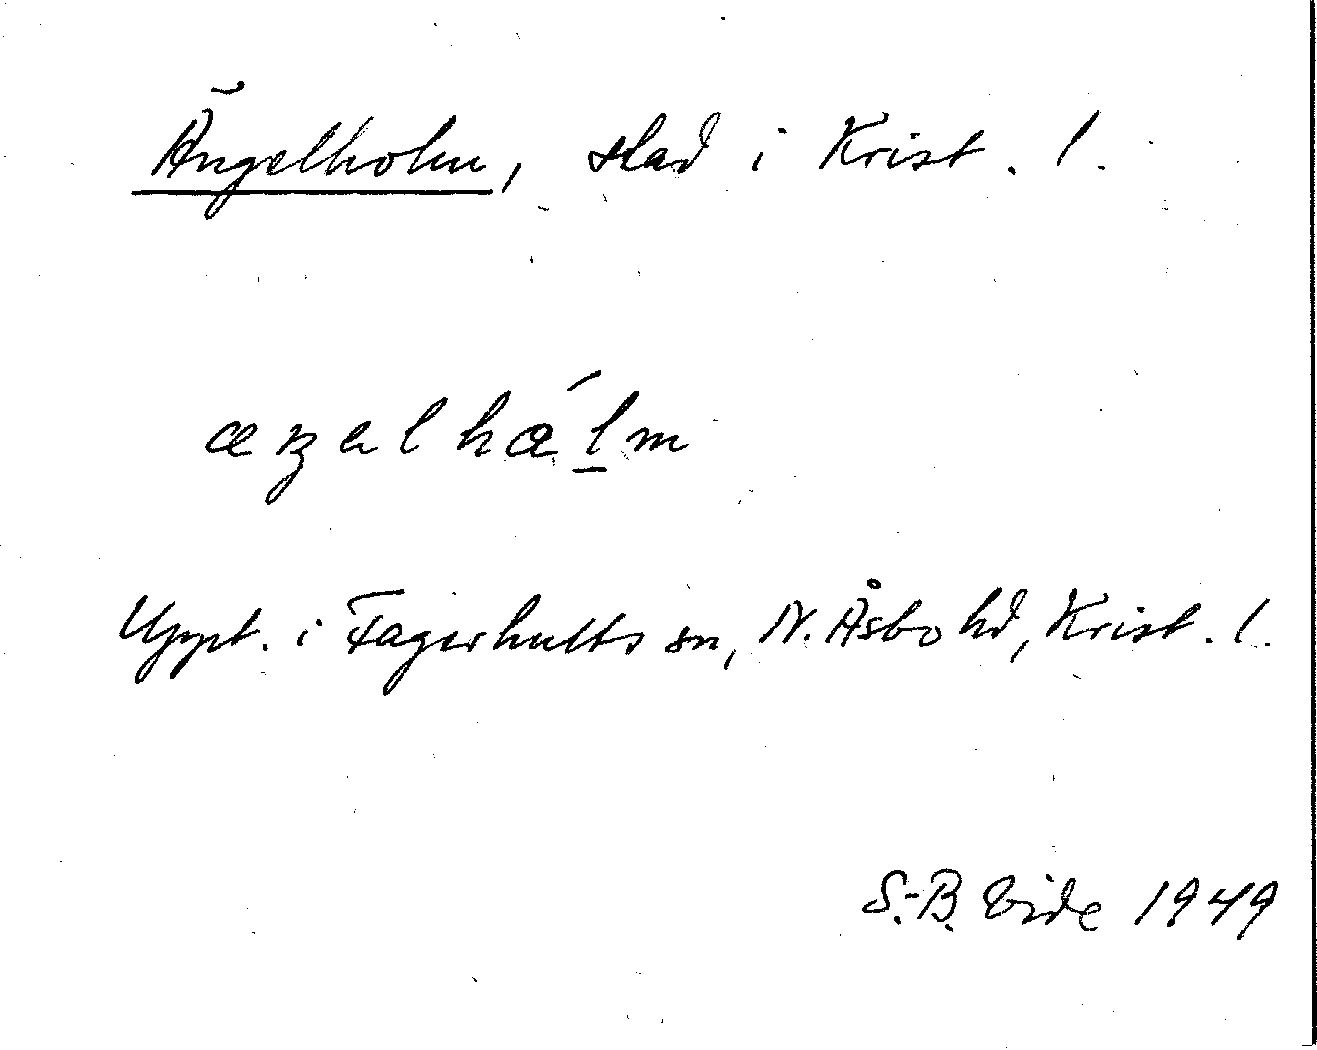 Ängelholm, stad i Krist. l.
æŋəlhá̱lm
Uppt. i Fagerhults sn, N. Åsbo hd, Krist. l.
S.-B. Vide 1949